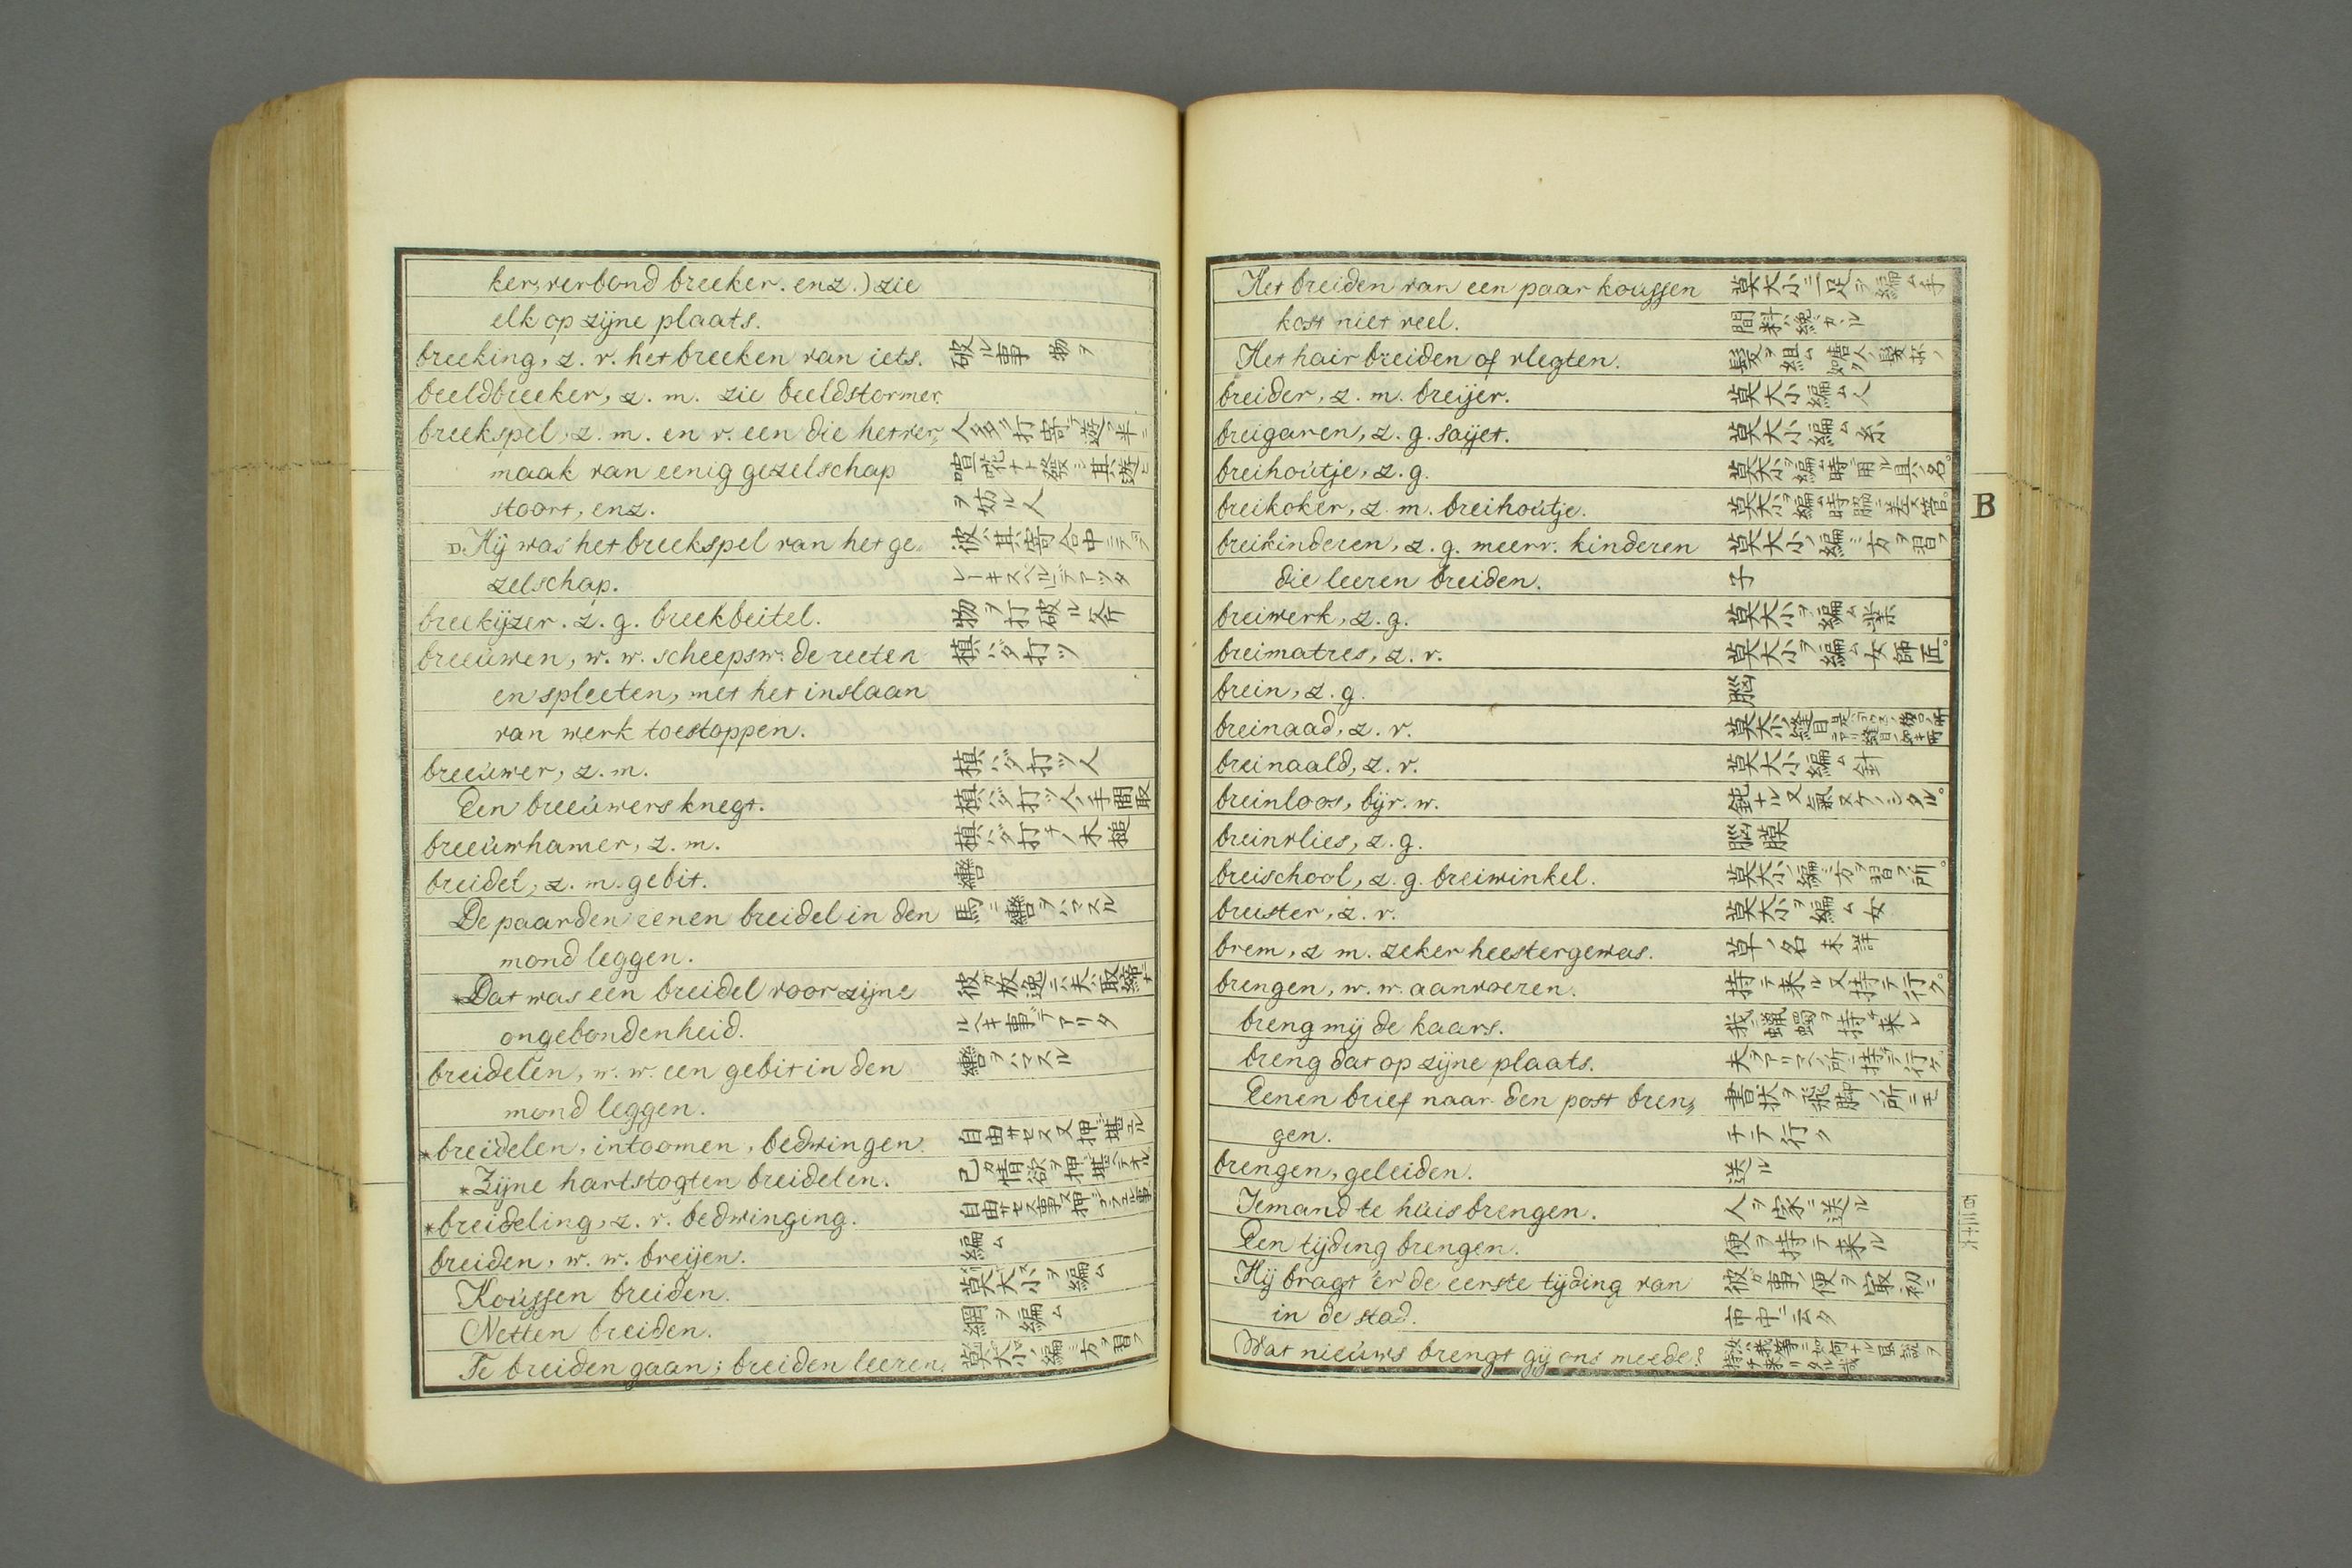 ker, verbond breeker. enz.) zie
elk op zijne plaats.
breeking, z. v. het breeken van iets. 破ル事 物ヲ
beeldbreeker, z. m. zie beeldstormer.
breekspel, z. m. en v. een die het ver„
maak van eenig gezelschap
stoort, enz. ヲ妨ル人
D. Hij was het breekspel van het ge„
zelschap.
breekijzer. z. g. breekbeitel. 物ヲ打破ル斧
breeúwen, w. w. scheepsw: de reeten 槙バダ打ツ
en spleeten, met het inslaan
van werk toestoppen.
breeúwer, z. m. 槙バダ打ツ人
Een breeúwers knegt. 槙バダ打ツ人ノ手間取
breeúwhamer, z. m. 槙バダ打チノ木槌
breidel, z. m. gebit. 轡
De paarden eenen breidel in den 馬ニ轡ヲハマスル
mond leggen.
*Dat was een breidel voor zijne
ongebondenheid. ルヘキ事デアリタ
breidelen, w. w. een gebit in den 轡ヲハマスル
mond leggen.
*breidelen, intoomen, bedwingen. 自由サセヌ又押堪ル
*Zijne hartstogten breidelen.
*breideling, z. v. bedwinging.
breiden, w. w. breijen. 編ム
Koússen breiden. 莫大小ヲ編ム
Netten breiden. 網ヲ編ム
Te breiden gaan; breiden leeren. 莫大小ノ編ミ方ヲ習フ
Het breiden van een paar koussen 莫大小一足ヲ編ム手
kost niet veel.
Het hair breiden of vlegten.
breider, z. m. breijer. 莫大小編ム人
breigaren, z. g. saijet. 莫大小編ム糸
breihoútje, z. g. 莫大小ヲ編ム時ニ用ル具ノ名。
breikoker, z. m. breihoútje.
breikinderen, z. g. meerv. kinderen 莫大小ノ編ミ方ヲ習フ
die leeren breiden. 子
breiwerk, z. g. 莫大小ヲ編ム業
breimatres, z. v. 莫大小ヲ編ム女師匠。
brein, z. g. 脳
breinaad, z. v.
breinaald, z. v. 莫大小編ム針
breinloos, bijv. w.
breinvlies, z. g. 脳膜
breischool, z. g. breiwinkel. 莫大小ノ編ミ方ヲ習フ所。
breister, z. v. 莫大小ヲ編ム女
brem, z m. zeker heestergewas. 草ノ名 未詳
brengen, w. w. aanvoeren. 持テ来ル又持テ行ク。
breng mij de kaars. 我ニ蠟蠋ヲ持チ来レ
breng dat op zijne plaats.
Eenen brief naar den post bren„ 書状ヲ飛脚ノ所ニモ
gen. チテ行ク
brengen, geleiden. 送ル
Iemand te húis brengen. 人ヲ家ニ送ル
Een tijding brengen. 便ヲ持テ来ル
Hij bragt 'er de eerste tijding van 彼ガ事ノ便ヲ最初ニ
in de stad.
Wat nieúws brengt gij ons meede?
B